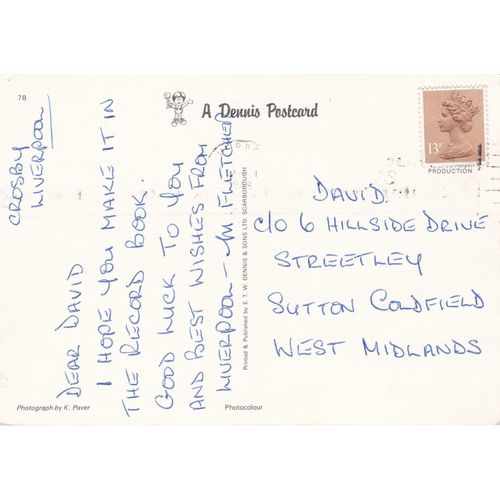 78
A Dennis Postcard
13P
PRODUCTION
CROSBY
LIVERPOOL
DEAR DAVID
I HOPE YOU MAKE IT IN
THE RECORD BOOK.
GOOD LUCK TO YOU
AND BEST WISHES FROM
LIVERPOOL - M FLETCHER
Printed & Published by E. T. W. DENNIS & SONS LTD. SCARBOROUGH
DAVID.
C/O 6 HILLSIDE DRIVE
STREETLEY
SUTTON COLDFIELD
WEST MIDLANDS
Photograph by K. Paver
Photocolour